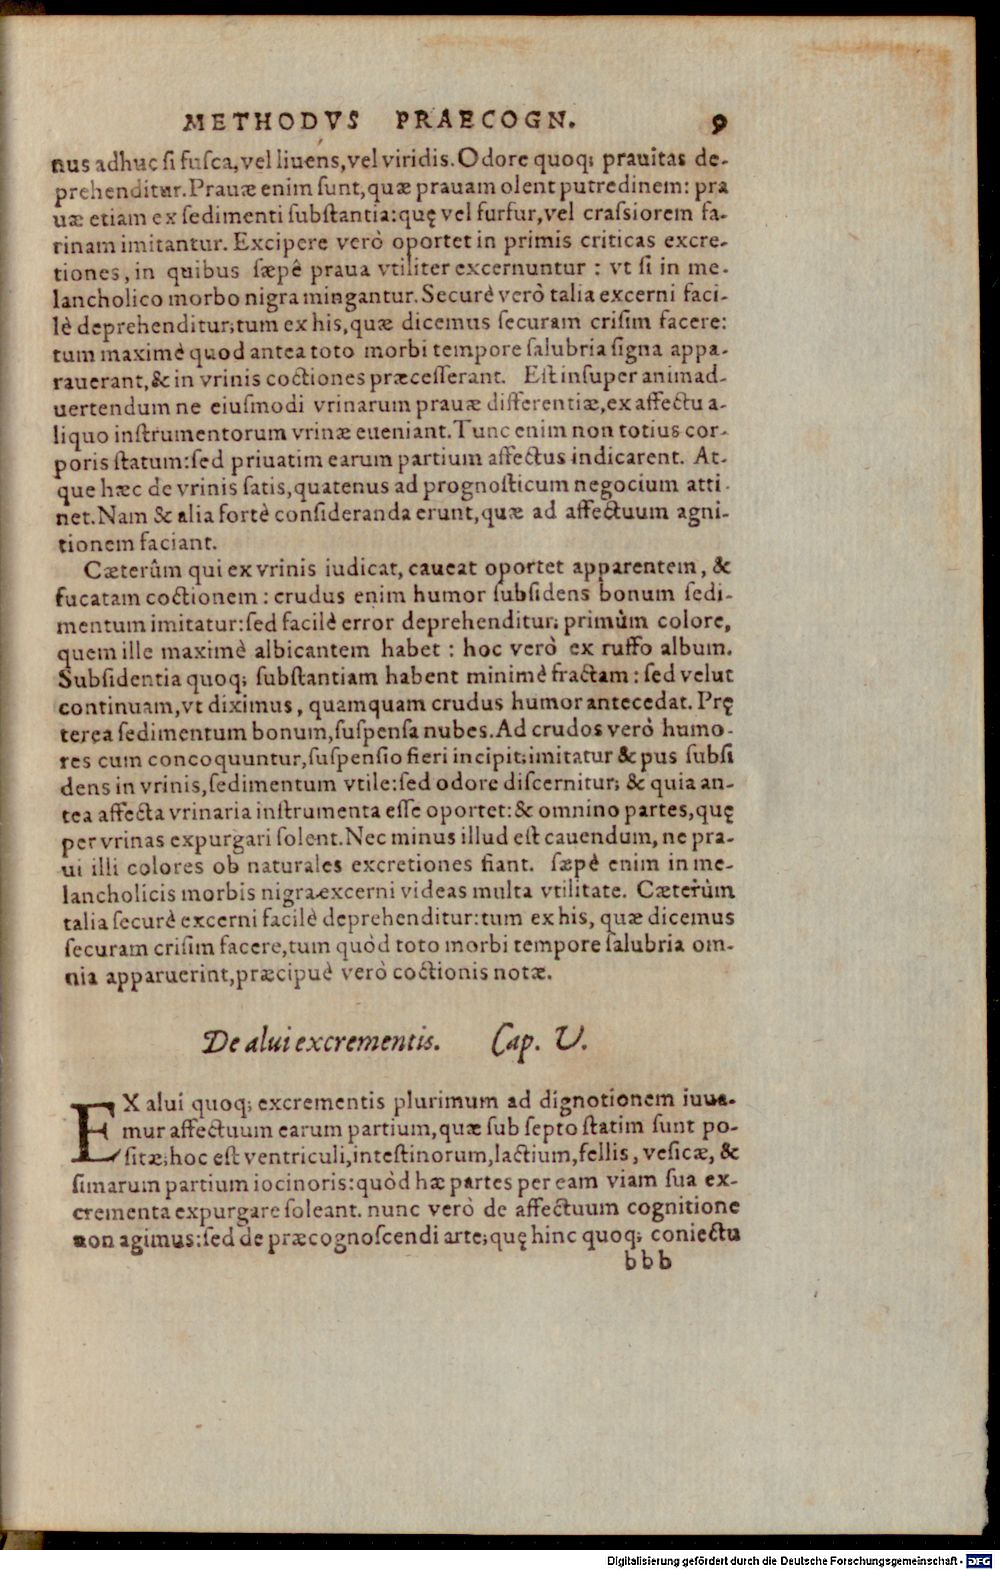 METHODVS PRAECOGN. 9
nus adhuc si fusca, vel liuens, vel viridis. Odore quoq; prauitas de-
prehenditur. Prauæ enim sunt, quæ prauam olent putredinem: pra
uæ etiam ex sedimenti substantia: quę vel furfur, vel crassiorem fa-
rinam imitantur. Excipere verò oportet in primis criticas excre-
tiones, in quibus sæpê praua vtiliter excernuntur : vt si in me-
lancholico morbo nigra mingantur. Securè verò talia excerni faci-
lè deprehenditur; tum ex his, quæ dicemus securam crisim facere:
tum maximè quod antea toto morbi tempore salubria signa appa-
rauerant, & in vrinis coctiones præcesserant. Est insuper animad-
uertendum ne eiusmodi vrinarum prauæ differentiæ, ex affectu a-
liquo instrumentorum vrinæ eueniant. Tunc enim non totius cor-
poris statum: sed priuatim earum partium affectus indicarent. At-
que hæc de vrinis satis, quatenus ad prognosticum negocium atti-
net. Nam & alia fortè consideranda erunt, quæ ad affectuum agni-
tionem faciant.
Cæterûm qui ex vrinis iudicat, caueat oportet apparentem, &
fucatam coctionem : crudus enim humor subsidens bonum sedi-
mentum imitatur: sed facilè error deprehenditur; primùm colore,
quem ille maximè albicantem habet : hoc verò ex ruffo album.
Subsidentia quoq; substantiam habent minimè fractam : sed velut
continuam, vt diximus, quamquam crudus humor antecedat. Prę
terea sedimentum bonum, suspensa nubes. Ad crudos verò humo-
res cum concoquuntur, suspensio fieri incipit; imitatur & pus subsi
dens in vrinis, sedimentum vtile: sed odore discernitur; & quia an-
tea affecta vrinaria instrumenta esse oportet: & omnino partes, quę
per vrinas expurgari solent. Nec minus illud est cauendum, ne pra-
ui illi colores ob naturales excretiones fiant. sæpè enim in me-
lancholicis morbis nigra excerni videas multa vtilitate. Cæterùm
talia securè excerni facilè deprehenditur: tum ex his, quæ dicemus
securam crisim facere, tum quòd toto morbi tempore salubria om-
nia apparuerint, præcipuè verò coctionis notæ.
De alui excrementis. Cap. V.
EX alui quoq; excrementis plurimum ad dignotionem iuua-
mur affectuum earum partium, quæ sub septo statim sunt po-
sitæ; hoc est ventriculi, intestinorum, lactium, fellis, vesicæ, &
simarum partium iocinoris: quòd hæ partes per eam viam sua ex-
crementa expurgare soleant. nunc verò de affectuum cognitione
non agimus: sed de præcognoscendi arte; quę hinc quoq; coniectu
bbb
Digitalisierung gefördert durch die Deutsche Forschungsgemeinschaft - DFG